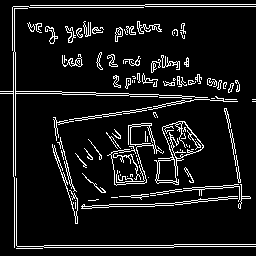 very yellow picture of
bed (2 red pillows
2 pillows without cases)